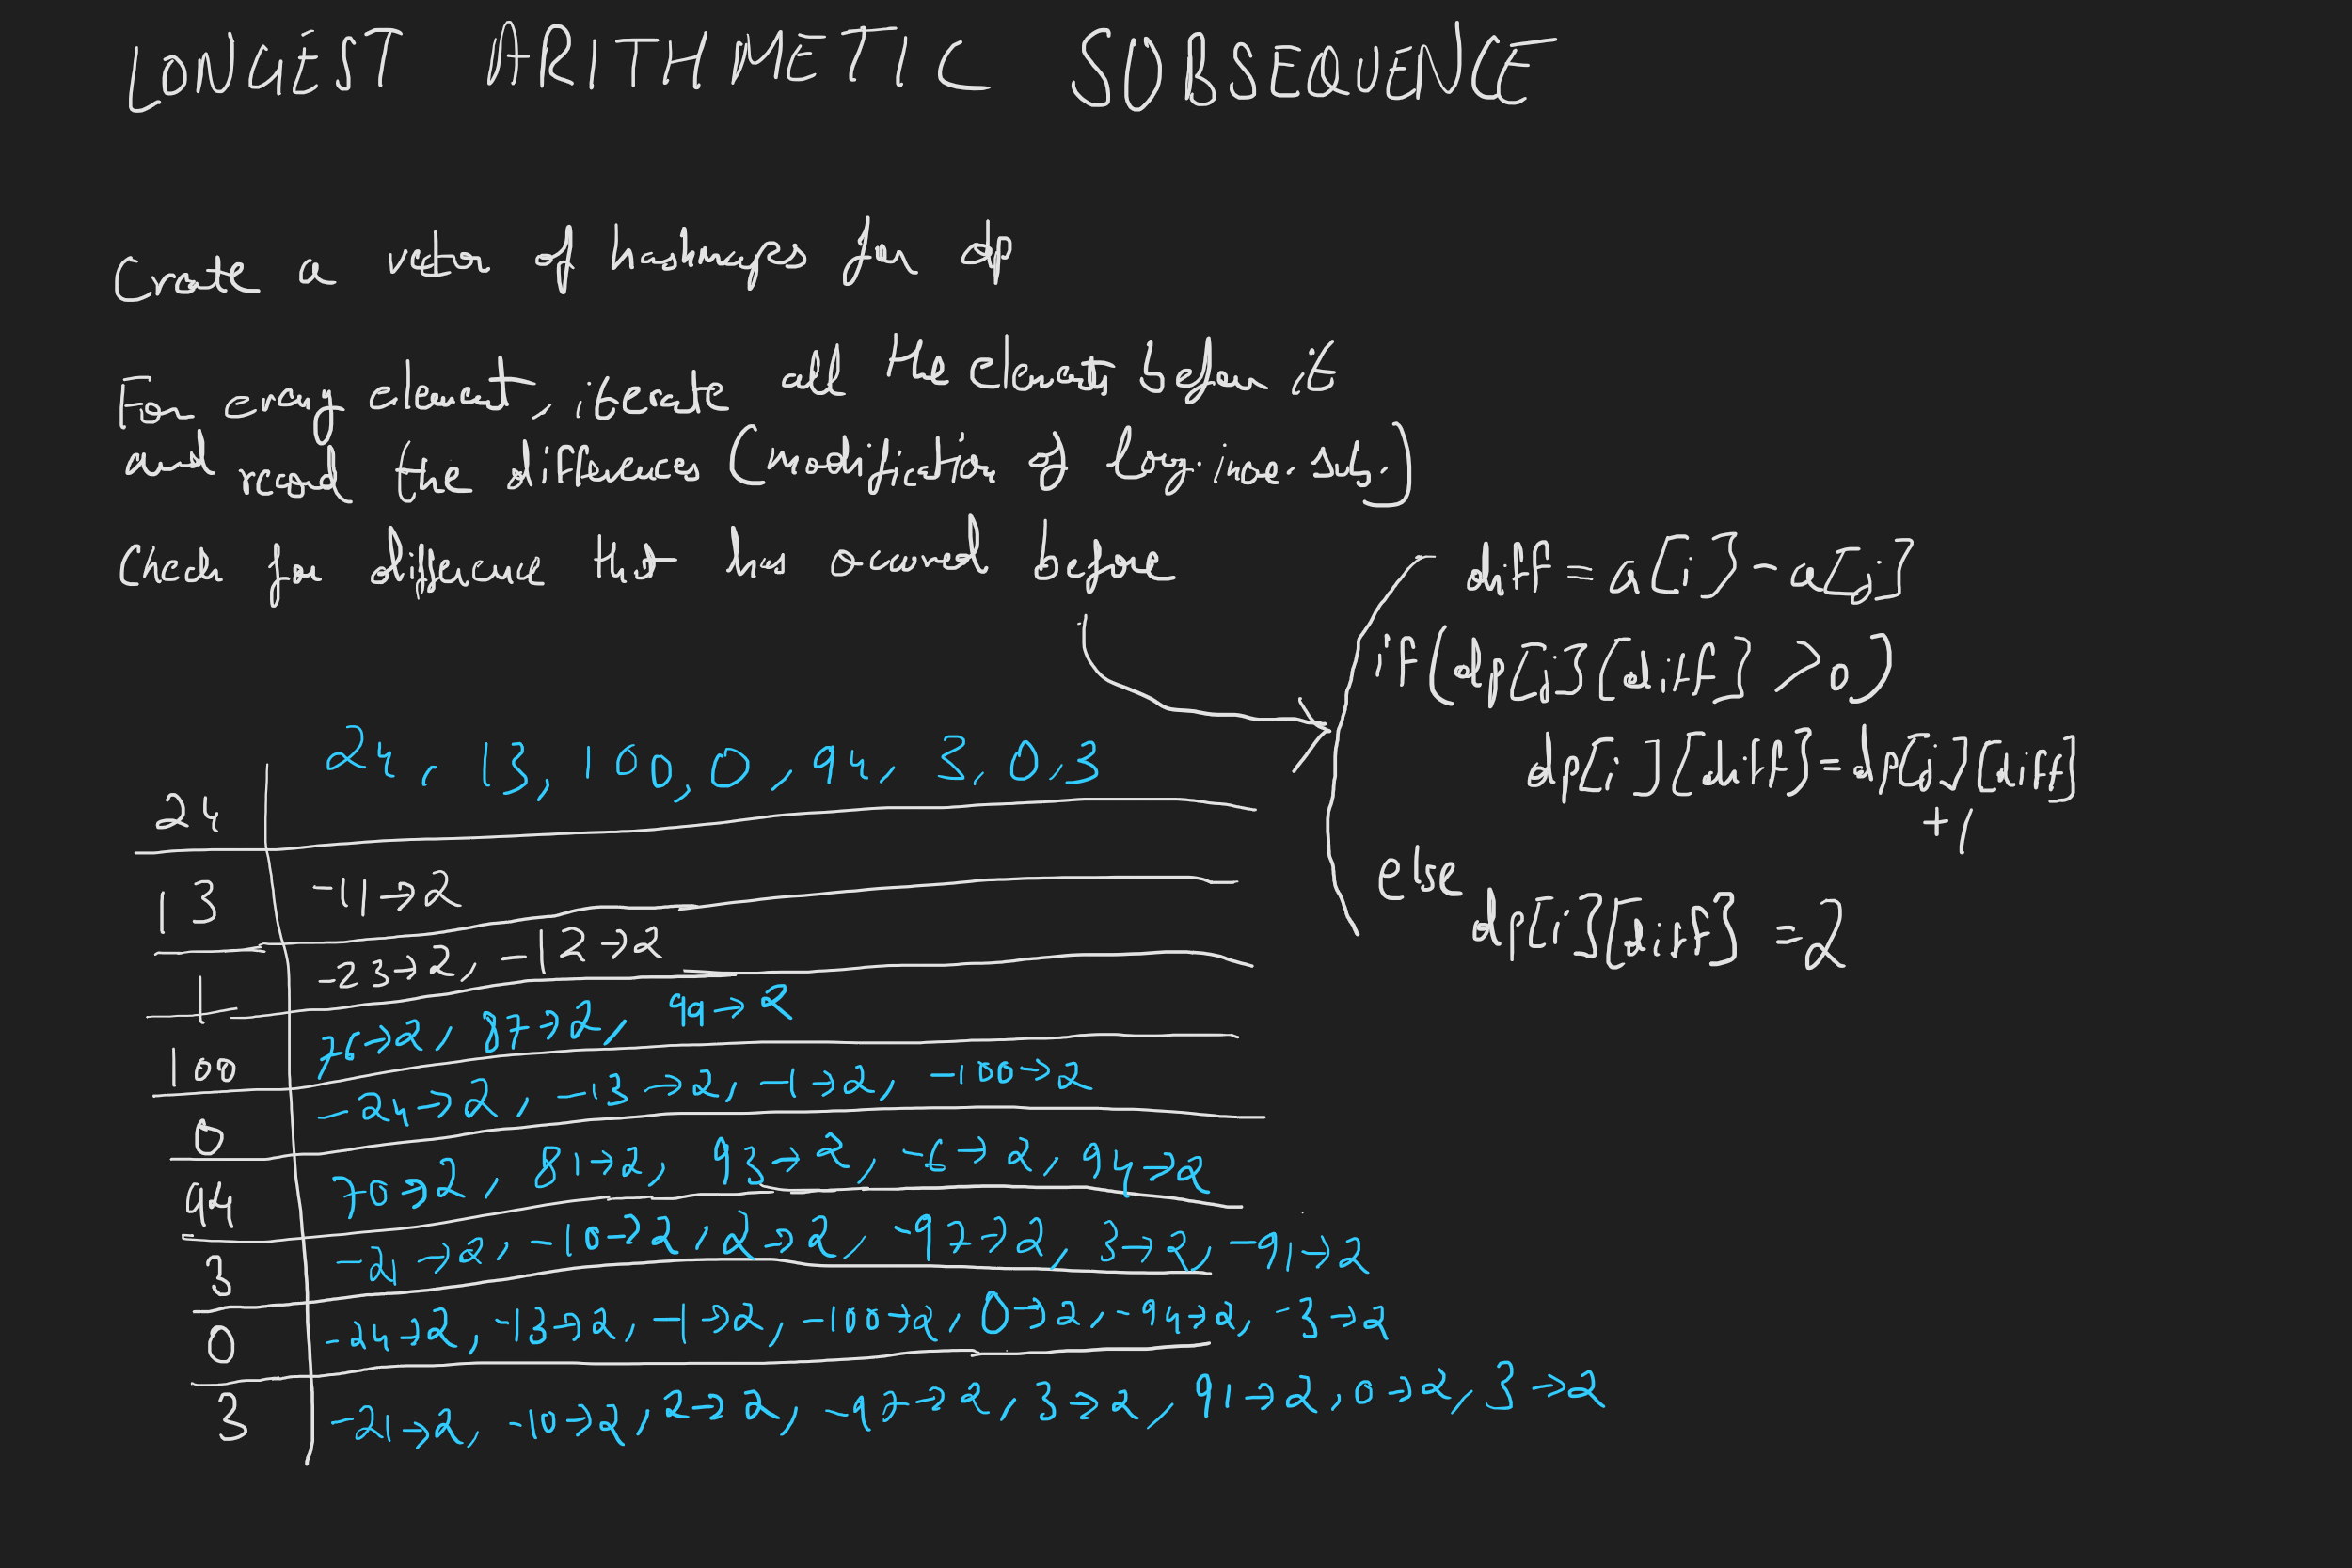 LONGEST ARITHMETIC SUBSEQUENCE
Create a vector of hashmaps for dp
For every element, iterate all the elements before it
and read the differences (modification of long. incre. sub.)
Check for difference that has occurred before
diff = a[i] - a[j]
if(dp[j][diff] > 0)
dp[i][diff] = dp[j][diff]
+1
else
dp[i][diff] = 2
24, 13, 1, 100, 0, 94, 3, 0, 3
24
13 -11→2
1 -23→2, -12→2
100 76→2, 87→2, 99→2
0 -24→2, -13→2, -1→2, -100→2
94 70→2, 81→2, 93→2, -6→2, 94→2
3 -21→2, -10→2, 2→2, -97→2, 3→2, -91→2
0 -24→2, -13→2, -1→2, -100→2, 0→2, -94→2, -3→2
3 -21→2, -10→2, 2→2, -97→2, 3→2, 91→2, 0→2, 3→2